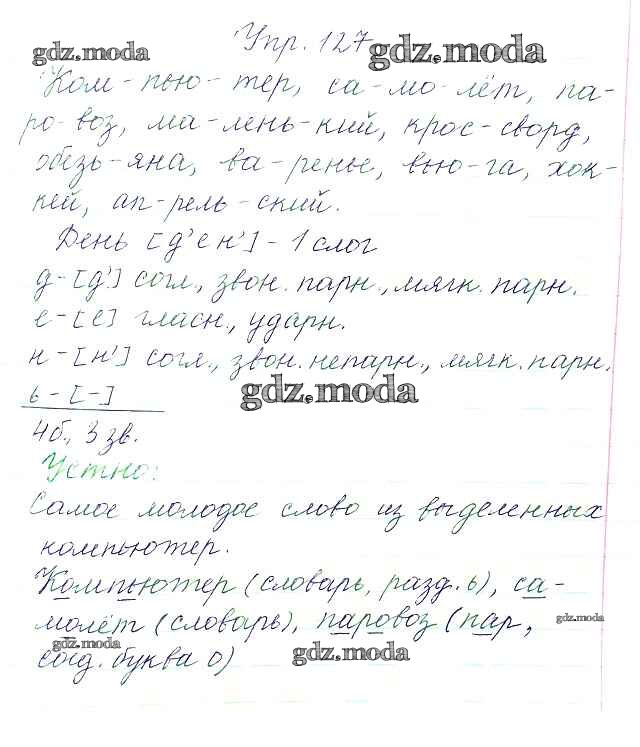 Упр. 127
gdz.moda
gdz.moda
Ком-пью-тер, са-мо-лёт, па-
ро-воз, ма-лень-кий, крос-сворд,
обезь-яна, ва-ренье, вью-га, хок-
кей, ап-рель-ский.
День [д'ен'] - 1 слог
д-[д'] согл., звон. парн., мягк. парн.
е-[е] гласн., ударн.
н-[н'] согл., звон. непарн., мягк. парн.
ь-[-]
gdz.moda
4б., 3 зв.
Устно:
Самое молодое слово из выделенных
компьютер.
Компьютер (словарь, разд. ь), са-
молёт (словарь), паровоз (пар,
gdz.moda
соед. буква о)
gdz.moda
gdz.moda